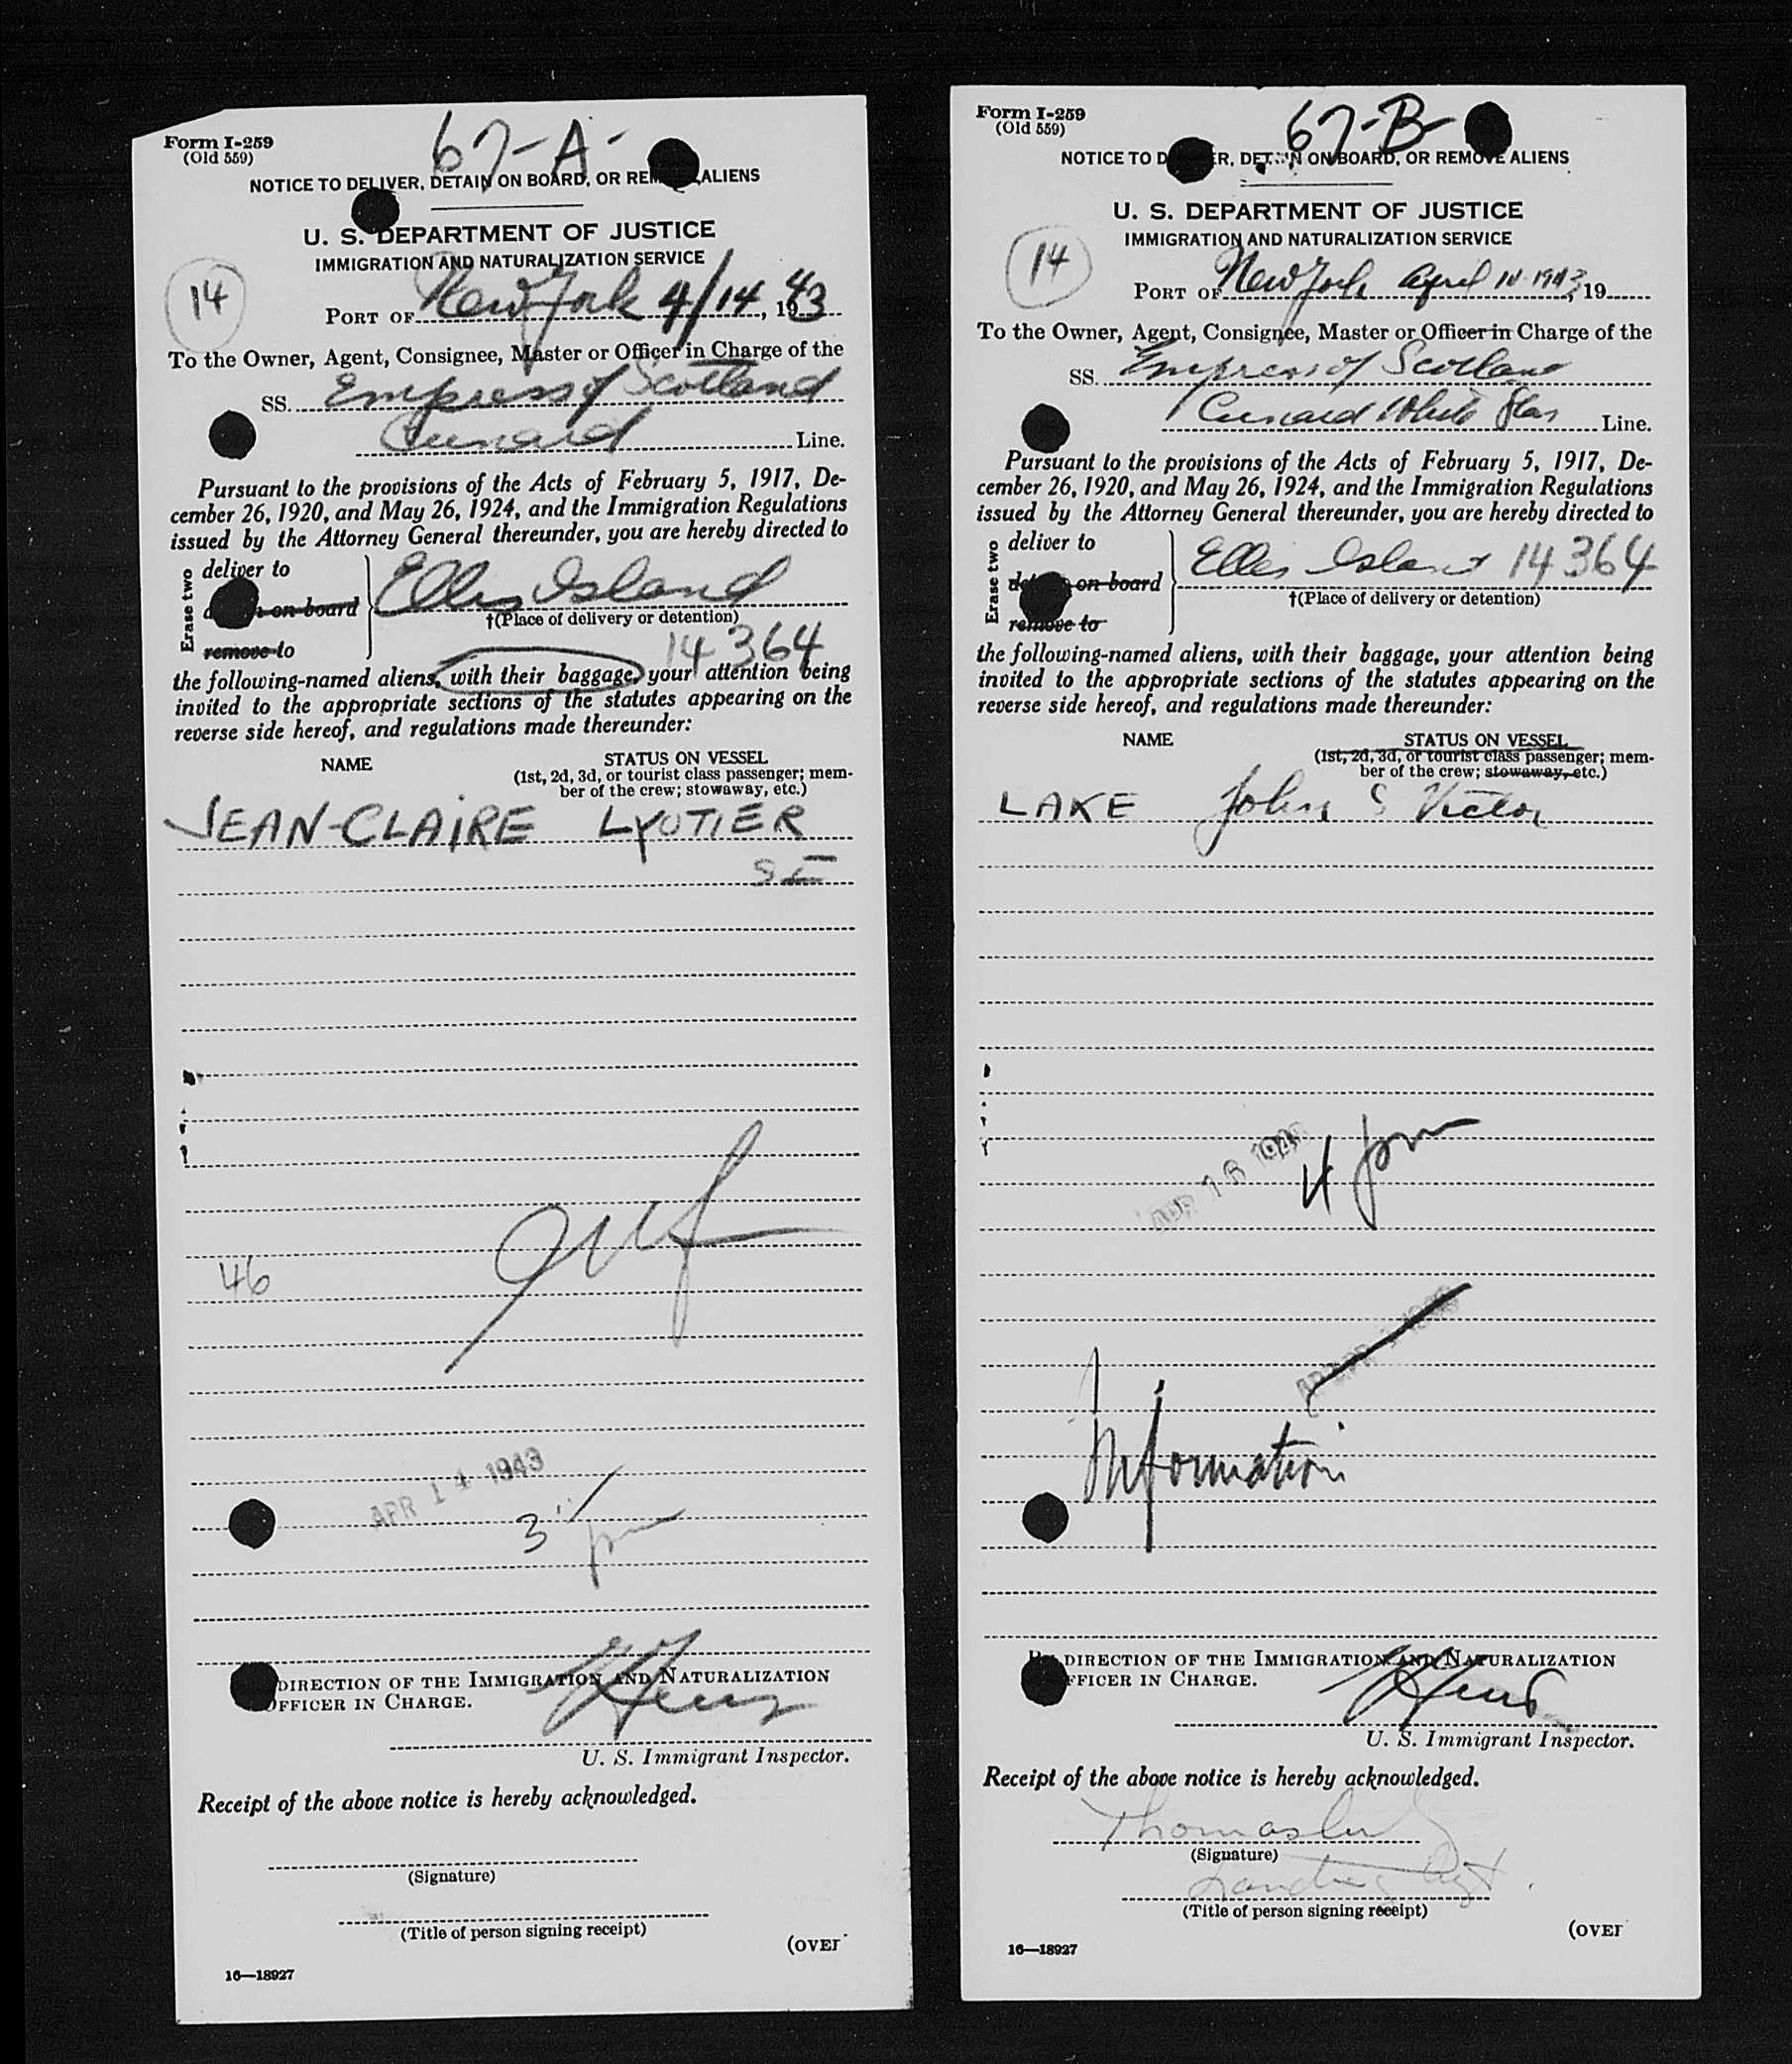 Form I-259
(Old 559)
67-A-
NOTICE TO DELIVER, DETAIN ON BOARD, OR ALIENS
U. S. DEPARTMENT OF JUSTICE
IMMIGRATION AND NATURALIZATION SERVICE
14
PORT OF New York 4/14, 1943
To the Owner, Agent, Consignee, Master or Officer in Charge of the
SS. Empress of Scotland
Cunard Line.
Pursuant to the provisions of the Acts of February 5, 1917, De-
cember 26, 1920, and May 26, 1924, and the Immigration Regulations
issued by the Attorney General thereunder, you are hereby directed to
Erase two
deliver to
on board
remove to
Ellis Island
†(Place of delivery or detention)
14364
the following-named aliens, with their baggage, your attention being
invited to the appropriate sections of the statutes appearing on the
reverse side hereof, and regulations made thereunder:
NAME
STATUS ON VESSEL
(1st, 2d, 3d, or tourist class passenger; mem-
ber of the crew; stowaway, etc.)
JEAN-CLAIRE LYOTIER
SI
46
APR 14 1943
3 pm
DIRECTION OF THE IMMIGRATION AND NATURALIZATION
OFFICER IN CHARGE.
U. S. Immigrant Inspector.
Receipt of the above notice is hereby acknowledged.
(Signature)
(Title of person signing receipt)
(OVER
16—18927
Form I-259
(Old 559)
67-B-
NOTICE TO DETAIN ON BOARD, OR REMOVE ALIENS
U. S. DEPARTMENT OF JUSTICE
IMMIGRATION AND NATURALIZATION SERVICE
14
PORT OF New York April 14-1943, 19
To the Owner, Agent, Consignee, Master or Officer in Charge of the
SS. Empress of Scotland
Cunard White Star Line.
Pursuant to the provisions of the Acts of February 5, 1917, De-
cember 26, 1920, and May 26, 1924, and the Immigration Regulations
issued by the Attorney General thereunder, you are hereby directed to
Erase two
deliver to
on board
remove to
Ellis Island 14364
†(Place of delivery or detention)
the following-named aliens, with their baggage, your attention being
invited to the appropriate sections of the statutes appearing on the
reverse side hereof, and regulations made thereunder:
NAME
STATUS ON VESSEL
(1st, 2d, 3d, or tourist class passenger; mem-
ber of the crew; stowaway, etc.)
LAKE John S Victor
APR 16 1943
4 pm
Information
DIRECTION OF THE IMMIGRATION AND NATURALIZATION
OFFICER IN CHARGE.
U. S. Immigrant Inspector.
Receipt of the above notice is hereby acknowledged.
Thomas
(Signature)
Landing Agt.
(Title of person signing receipt)
(OVER
16—18927